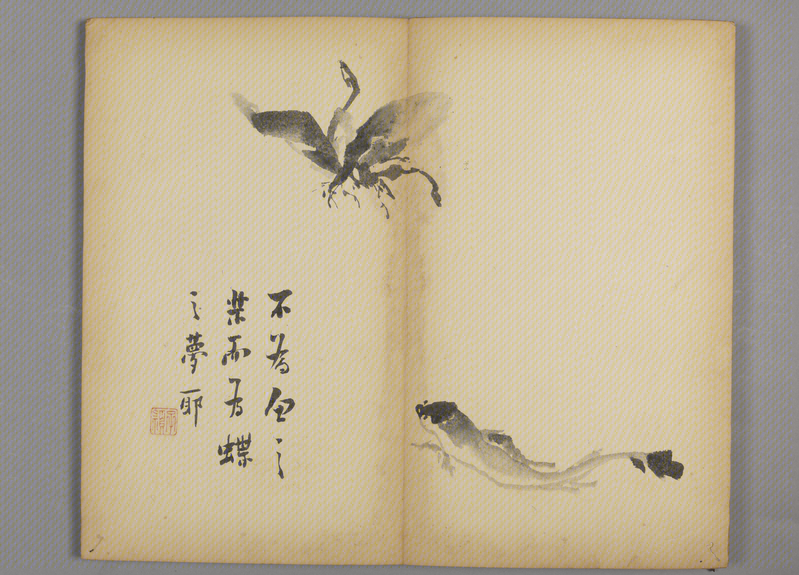 不為魚之
樂而為蝶
之夢耶